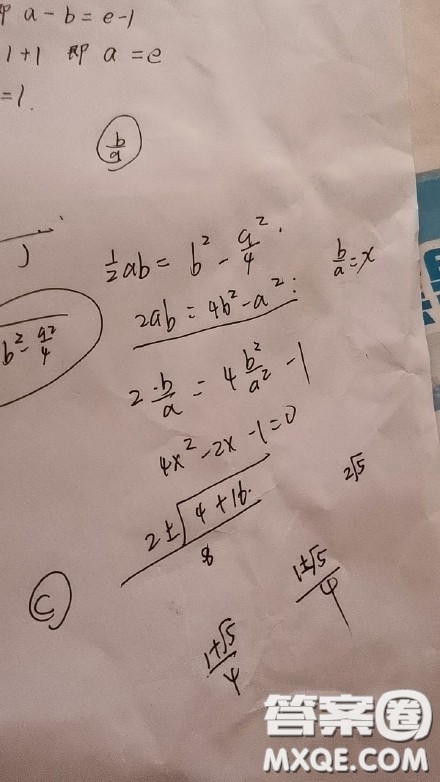 即 a-b=e-1
1+1 即 a=e
=1.
b/a
½ab = b² - a²/4.
b/a = x
2ab = 4b² - a²:
b² - a²/4
2·b/a = 4 b²/a² - 1
4x² - 2x - 1 = 0
2√5
2±√4+16.
8
1±√5
4
C
1+√5
4
答案圈
MXQE.COM